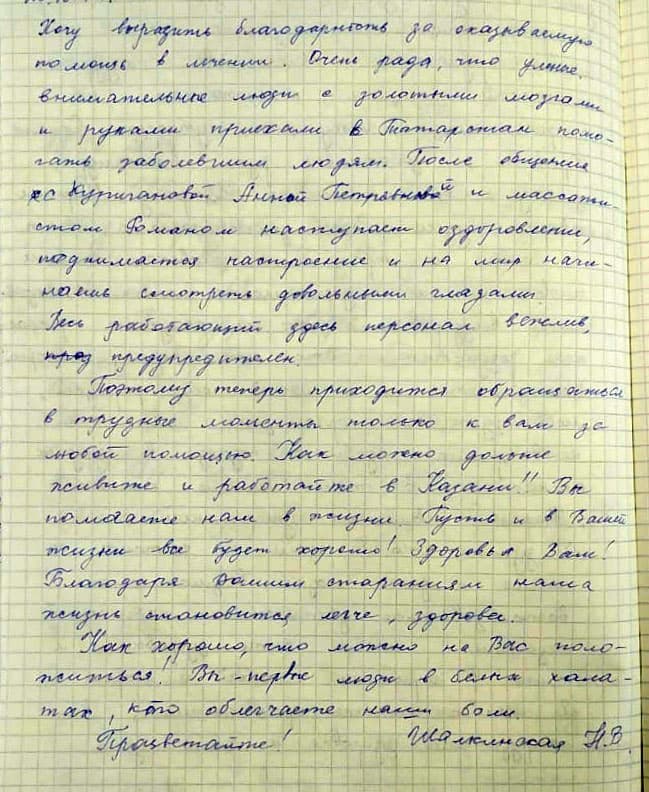 Хочу выразить благодарность за оказываемую
помощь в лечении. Очень рада, что умные,
внимательные люди с золотыми мозгами
и руками приехали в Татарстан помо-
гать заболевшим людям. После общения
с Анной Петровной и массажи-
стом Романом наступает оздоровление,
поднимается настроение и на мир начи-
наешь смотреть довольными глазами.
Весь работающий здесь персонал вежлив,
предупредителен.
Поэтому теперь приходится обращаться
в трудные моменты только к вам за
любой помощью. Как можно дольше
живите и работайте в Казани!! Вы
помогаете нам в жизни. Пусть и в Вашей
жизни все будет хорошо! Здоровья Вам!
Благодаря Вашим стараниям наша
жизнь становится легче, здоровее.
Как хорошо, что можно на Вас поло-
житься! Вы - первые люди в белых хала-
тах, кто облегчаете наши боли.
Процветайте! Н.В.